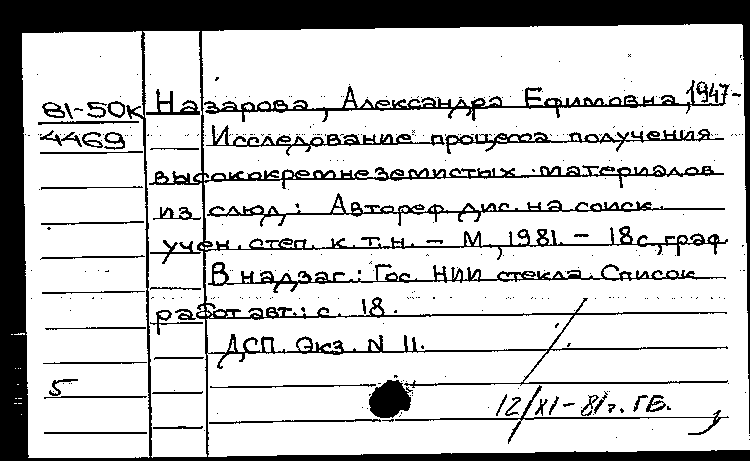 81-50к Назарова, Александра Ефимовна, 1947-
4469 Исследование процесса получения
высококремнеземистых материалов
из слюд: Автореф. дис. на соиск.
учен. степ. к. т. н. - М., 1981. - 18 с., граф.
В надзаг.: Гос. НИИ стекла. Список
работ авт.: с. 18.
ДСП. Экз. N 11.
5
12/XI-81г. ГБ.